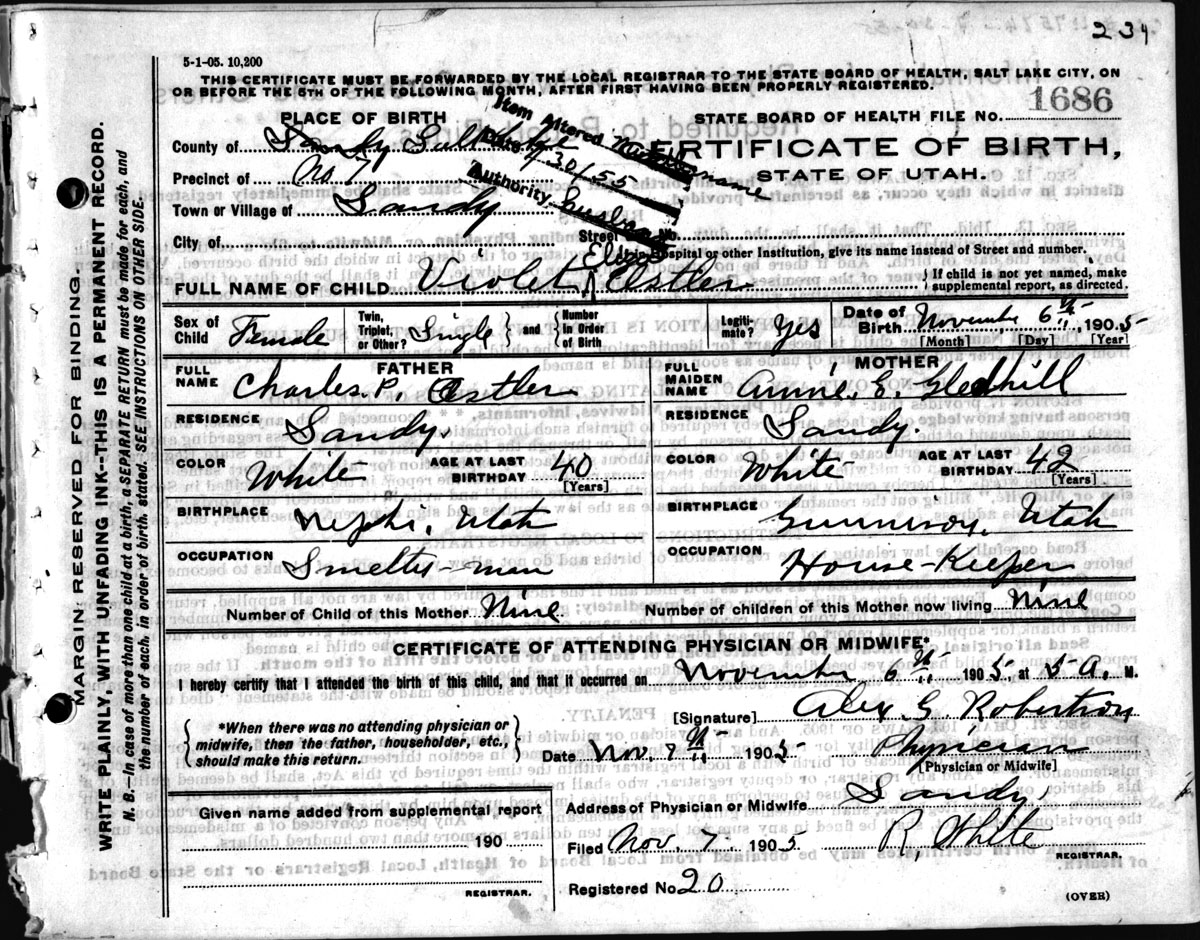 234
5-1-05. 10,200
THIS CERTIFICATE MUST BE FORWARDED BY THE LOCAL REGISTRAR TO THE STATE BOARD OF HEALTH, SALT LAKE CITY, ON
OR BEFORE THE 5TH OF THE FOLLOWING MONTH, AFTER FIRST HAVING BEEN PROPERLY REGISTERED.
PLACE OF BIRTH
STATE BOARD OF HEALTH FILE NO. 1686
County of Sandy Salt Lake
CERTIFICATE OF BIRTH,
STATE OF UTAH.
Item Altered name
Date 7/30/55
Authority
Precinct of No. 7
Town or Village of Sandy
City of Street No.
Hospital or other Institution, give its name instead of Street and number.
FULL NAME OF CHILD Violet Estler
{ If child is not yet named, make
supplemental report, as directed.
Sex of Child Female
Twin, Triplet, or Other? Single } and { Number in Order of Birth
Legitimate? Yes
Date of Birth November 6th 1905
[Month] [Day] [Year]
FATHER
FULL NAME Charles. P. Estler
RESIDENCE Sandy.
COLOR White AGE AT LAST BIRTHDAY 40 [Years]
BIRTHPLACE Nephi, Utah
OCCUPATION Smelter-man
MOTHER
FULL MAIDEN NAME Annie. E. Gledhill
RESIDENCE Sandy.
COLOR White AGE AT LAST BIRTHDAY 42 [Years]
BIRTHPLACE Gunnison, Utah
OCCUPATION House-Keeper
Number of Child of this Mother Nine Number of children of this Mother now living Nine
CERTIFICATE OF ATTENDING PHYSICIAN OR MIDWIFE*
I hereby certify that I attended the birth of this child, and that it occurred on November 6th 1905, at 5 A. M.
{ *When there was no attending physician or
midwife, then the father, householder, etc.,
should make this return. }
[Signature] Alex. G. Robertson
Date Nov. 7th 1905 Physician
[Physician or Midwife]
Given name added from supplemental report
190
REGISTRAR.
Address of Physician or Midwife Sandy.
Filed Nov. 7. 1905 R. White
REGISTRAR.
Registered No. 20
(OVER)
MARGIN RESERVED FOR BINDING.
WRITE PLAINLY, WITH UNFADING INK--THIS IS A PERMANENT RECORD.
N. B.--In case of more than one child at a birth, a SEPARATE RETURN must be made for each, and
the number of each, in order of birth, stated. SEE INSTRUCTIONS ON OTHER SIDE.